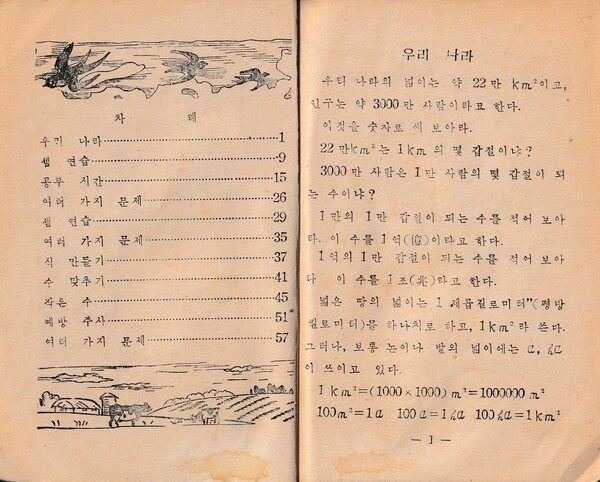 차 례
우리 나라 1
셈 연습 9
공부 시간 15
여러 가지 문제 26
셈 연습 29
여러 가지 문제 35
식 만들기 37
수 맞추기 41
작은 수 45
예방 주사 51
여러 가지 문제 57
우리 나라
우리 나라의 넓이는 약 22만 km²이고,
인구는 약 3000만 사람이라고 한다.
이것을 숫자로 써 보아라.
22만km²는 1km의 몇 갑절이냐?
3000만 사람은 1만 사람의 몇 갑절이 되
는 수이냐?
1만의 1만 갑절이 되는 수를 적어 보아
라. 이 수를 1억(億)이라고 한다.
1억의 1만 갑절이 되는 수를 적어 보아
라 이 수를 1조(兆)라고 한다.
넓은 땅의 넓이는 1 제곱킬로미터"(평방
킬로미터)를 하나치로 하고, 1km²라 쓴다.
그러나, 보통 논이나 밭의 넓이에는 a, ha
이 쓰이고 있다.
1 km²=(1000×1000) m²=1000000 m²
100m²=1a 100a=1ha 100ha=1km²
— 1 —